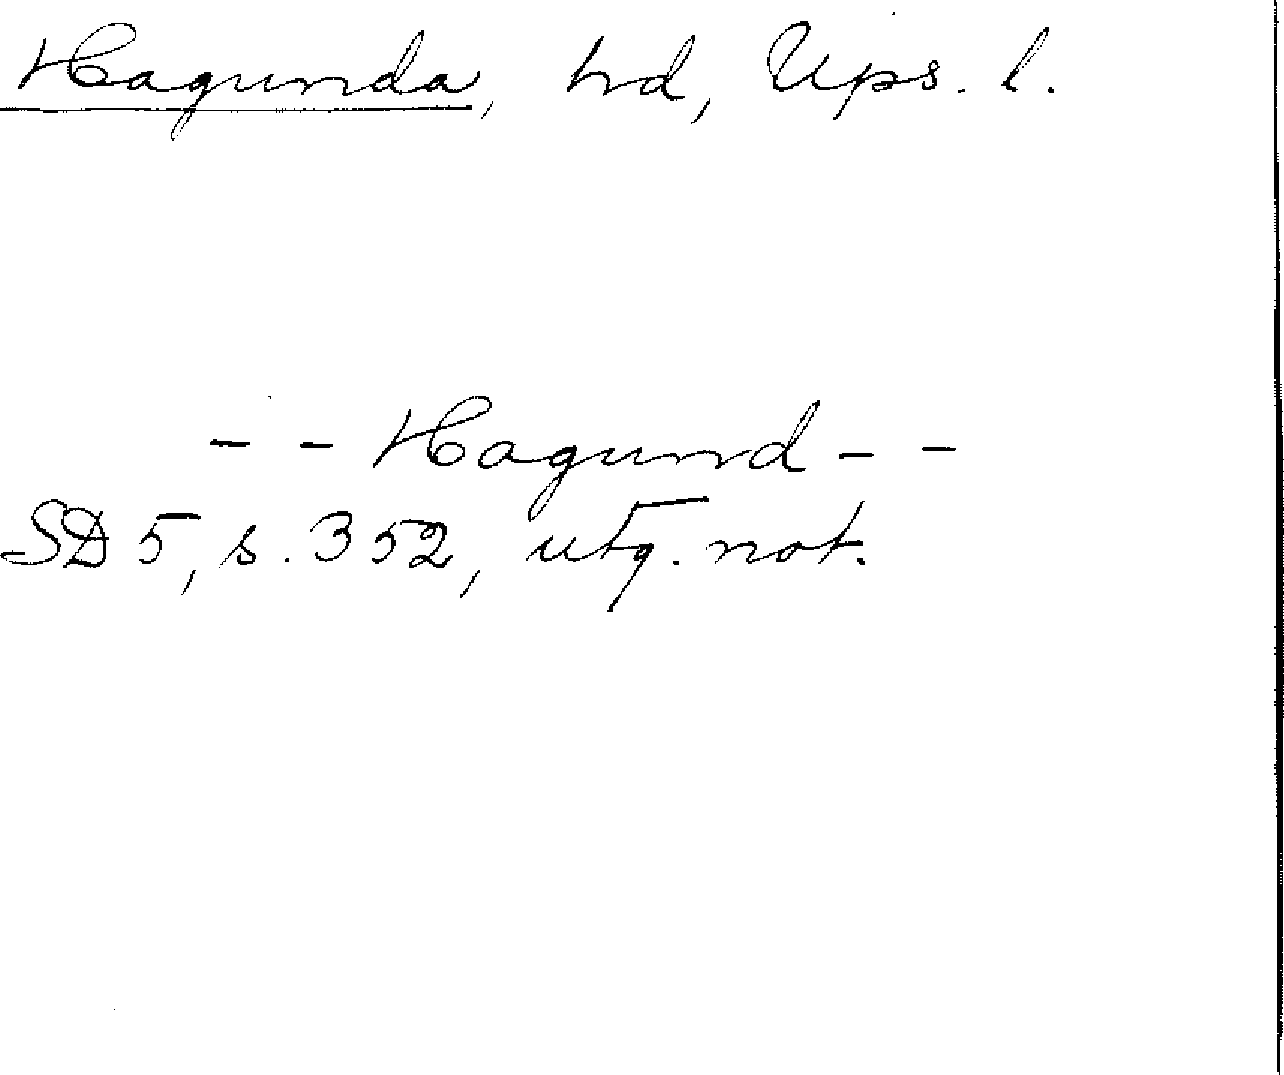 Hagunda, hd, Ups. l.
- - Hagund - -
SD 5, s. 352, utg. not.